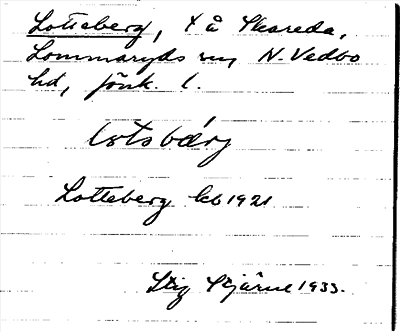 Lotteberg, t å Skareda,
Lommaryds sn, N. Vedbo
hd, Jönk. l.
lotsbärj
Lotteberg kb 1921
Stig Stjärne 1933.